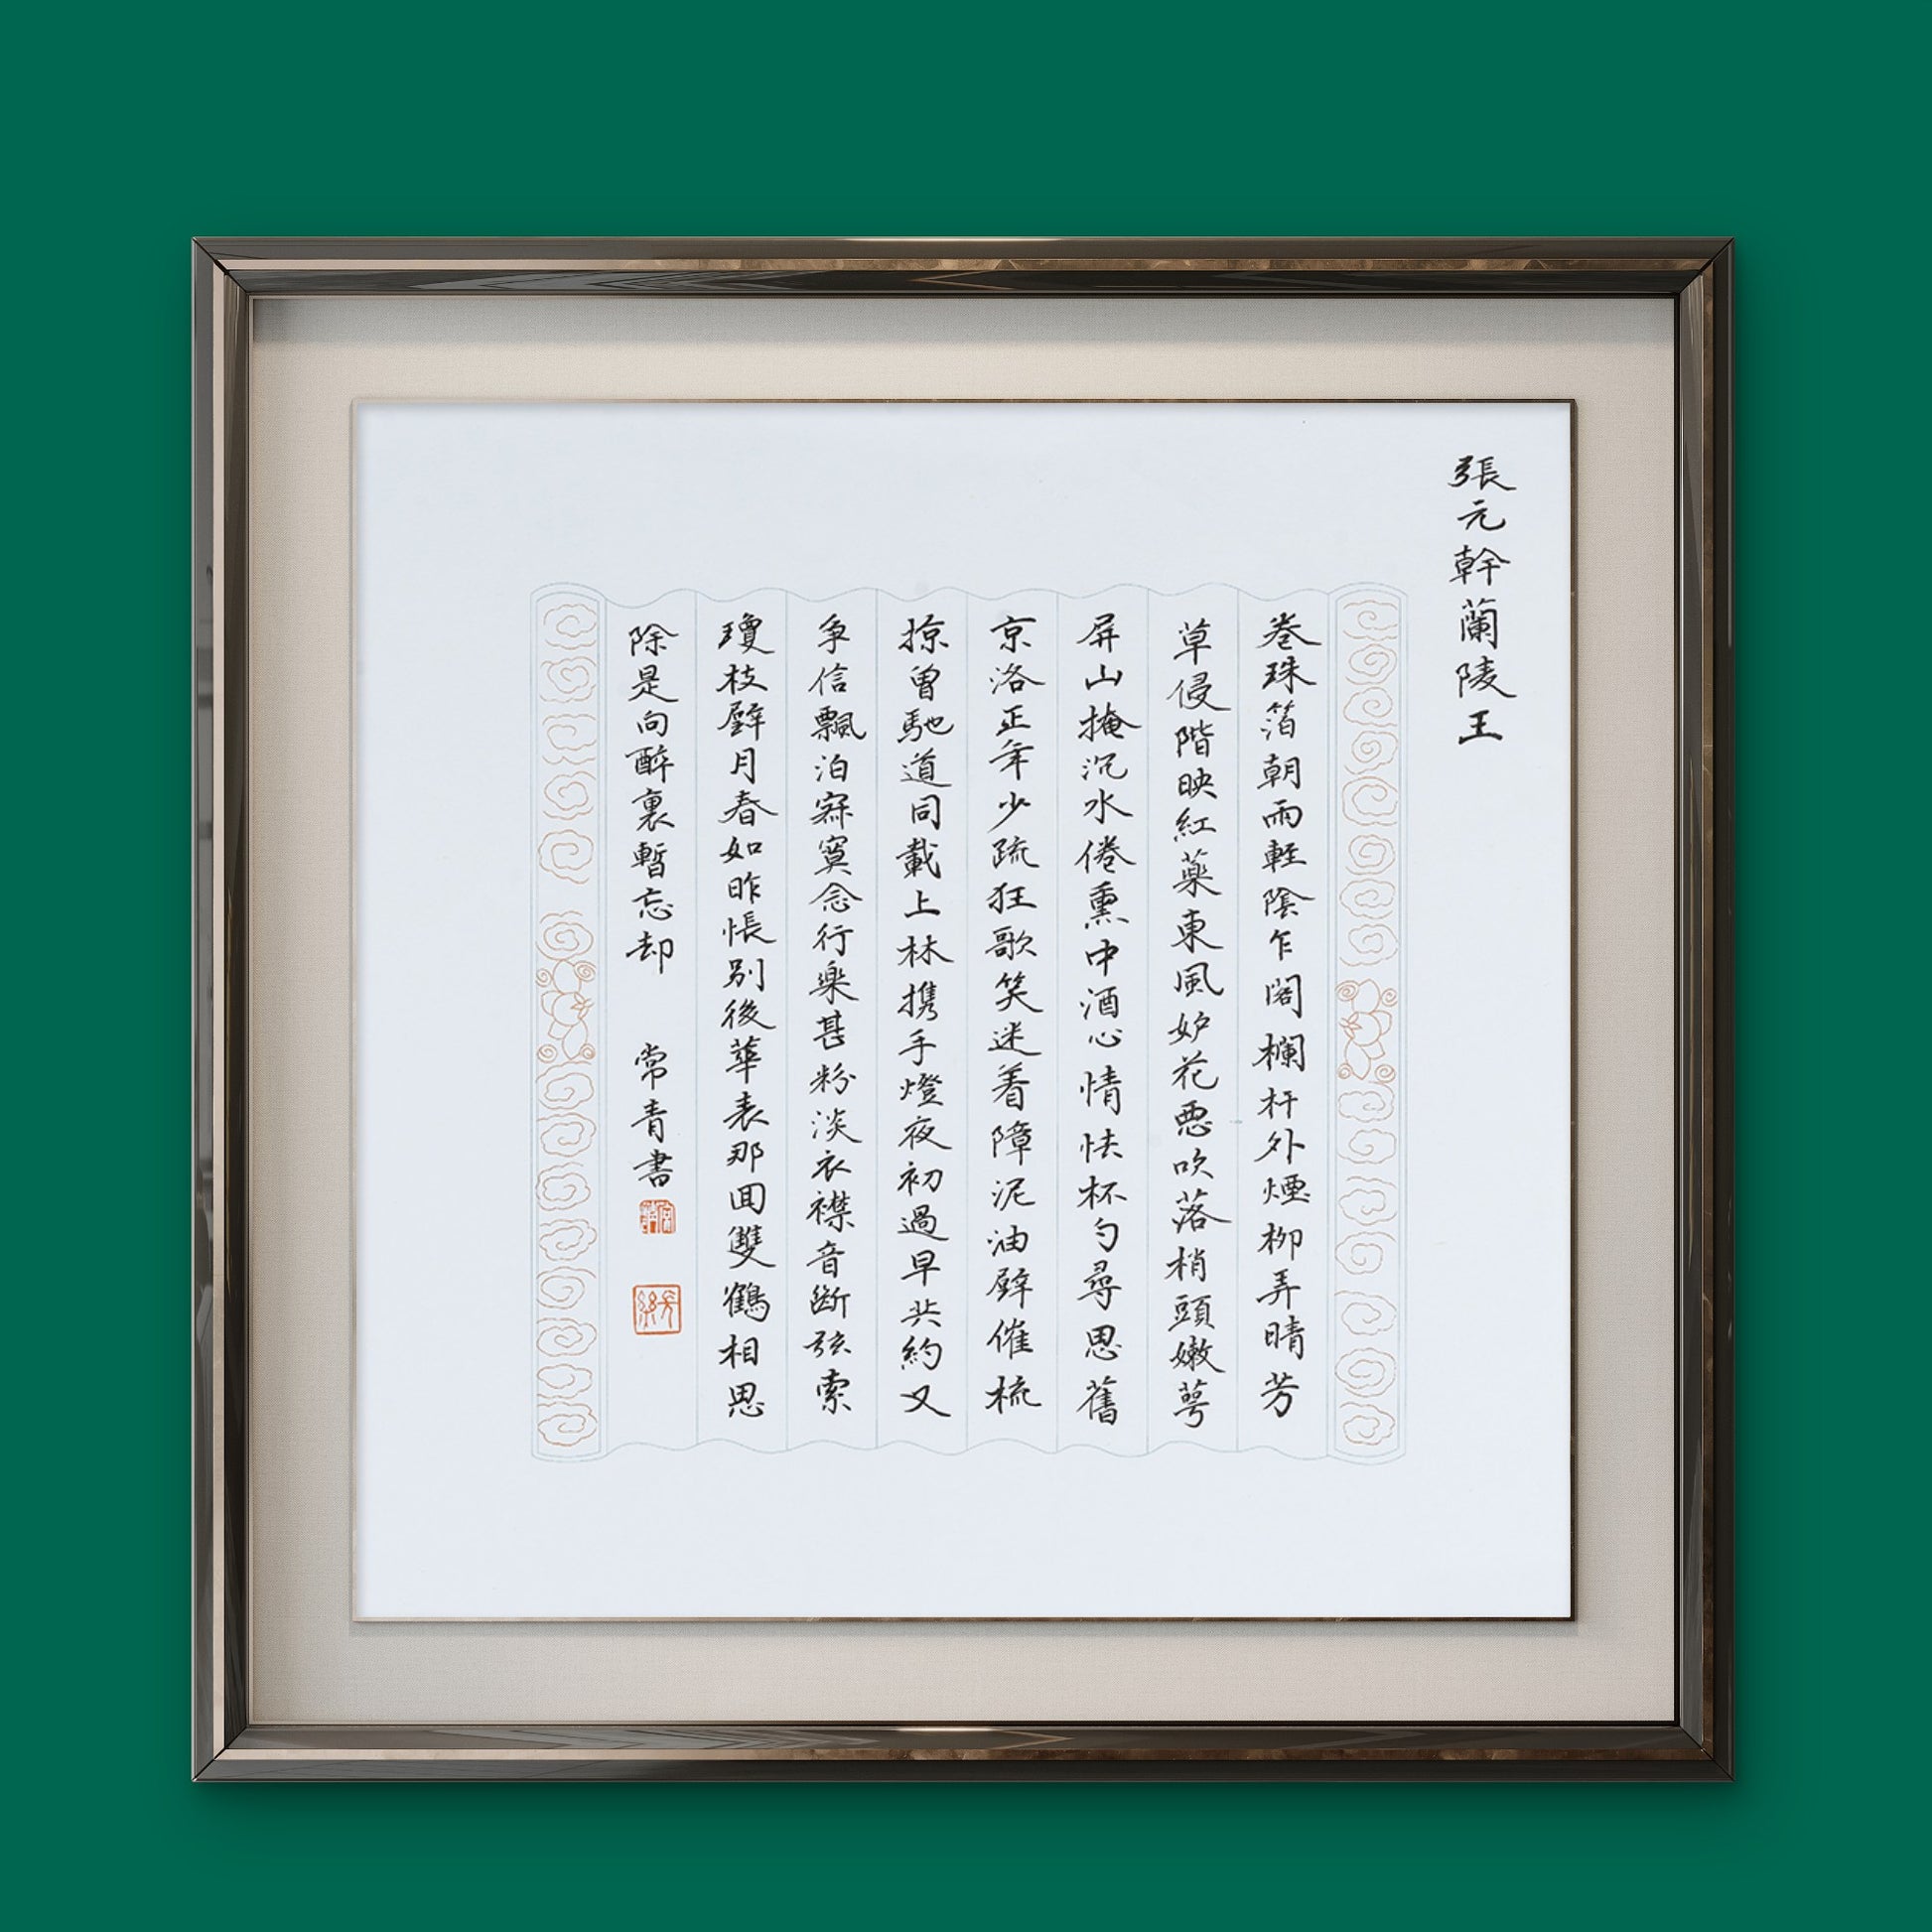 張元幹蘭陵王
卷珠箔朝雨輕陰乍閣欄杆外煙柳弄晴芳
草侵階映紅藥東風妒花惡吹落梢頭嫩萼
屏山掩沉水倦熏中酒心情怯杯勺尋思舊
京洛正年少疏狂歌笑迷着障泥油壁催梳
掠曾馳道同載上林攜手燈夜初過早共約又
爭信飄泊寂寞念行樂甚粉淡衣襟音斷弦索
瓊枝壁月春如昨悵別後華表那回雙鶴相思
除是向醉裏暫忘却 常青書